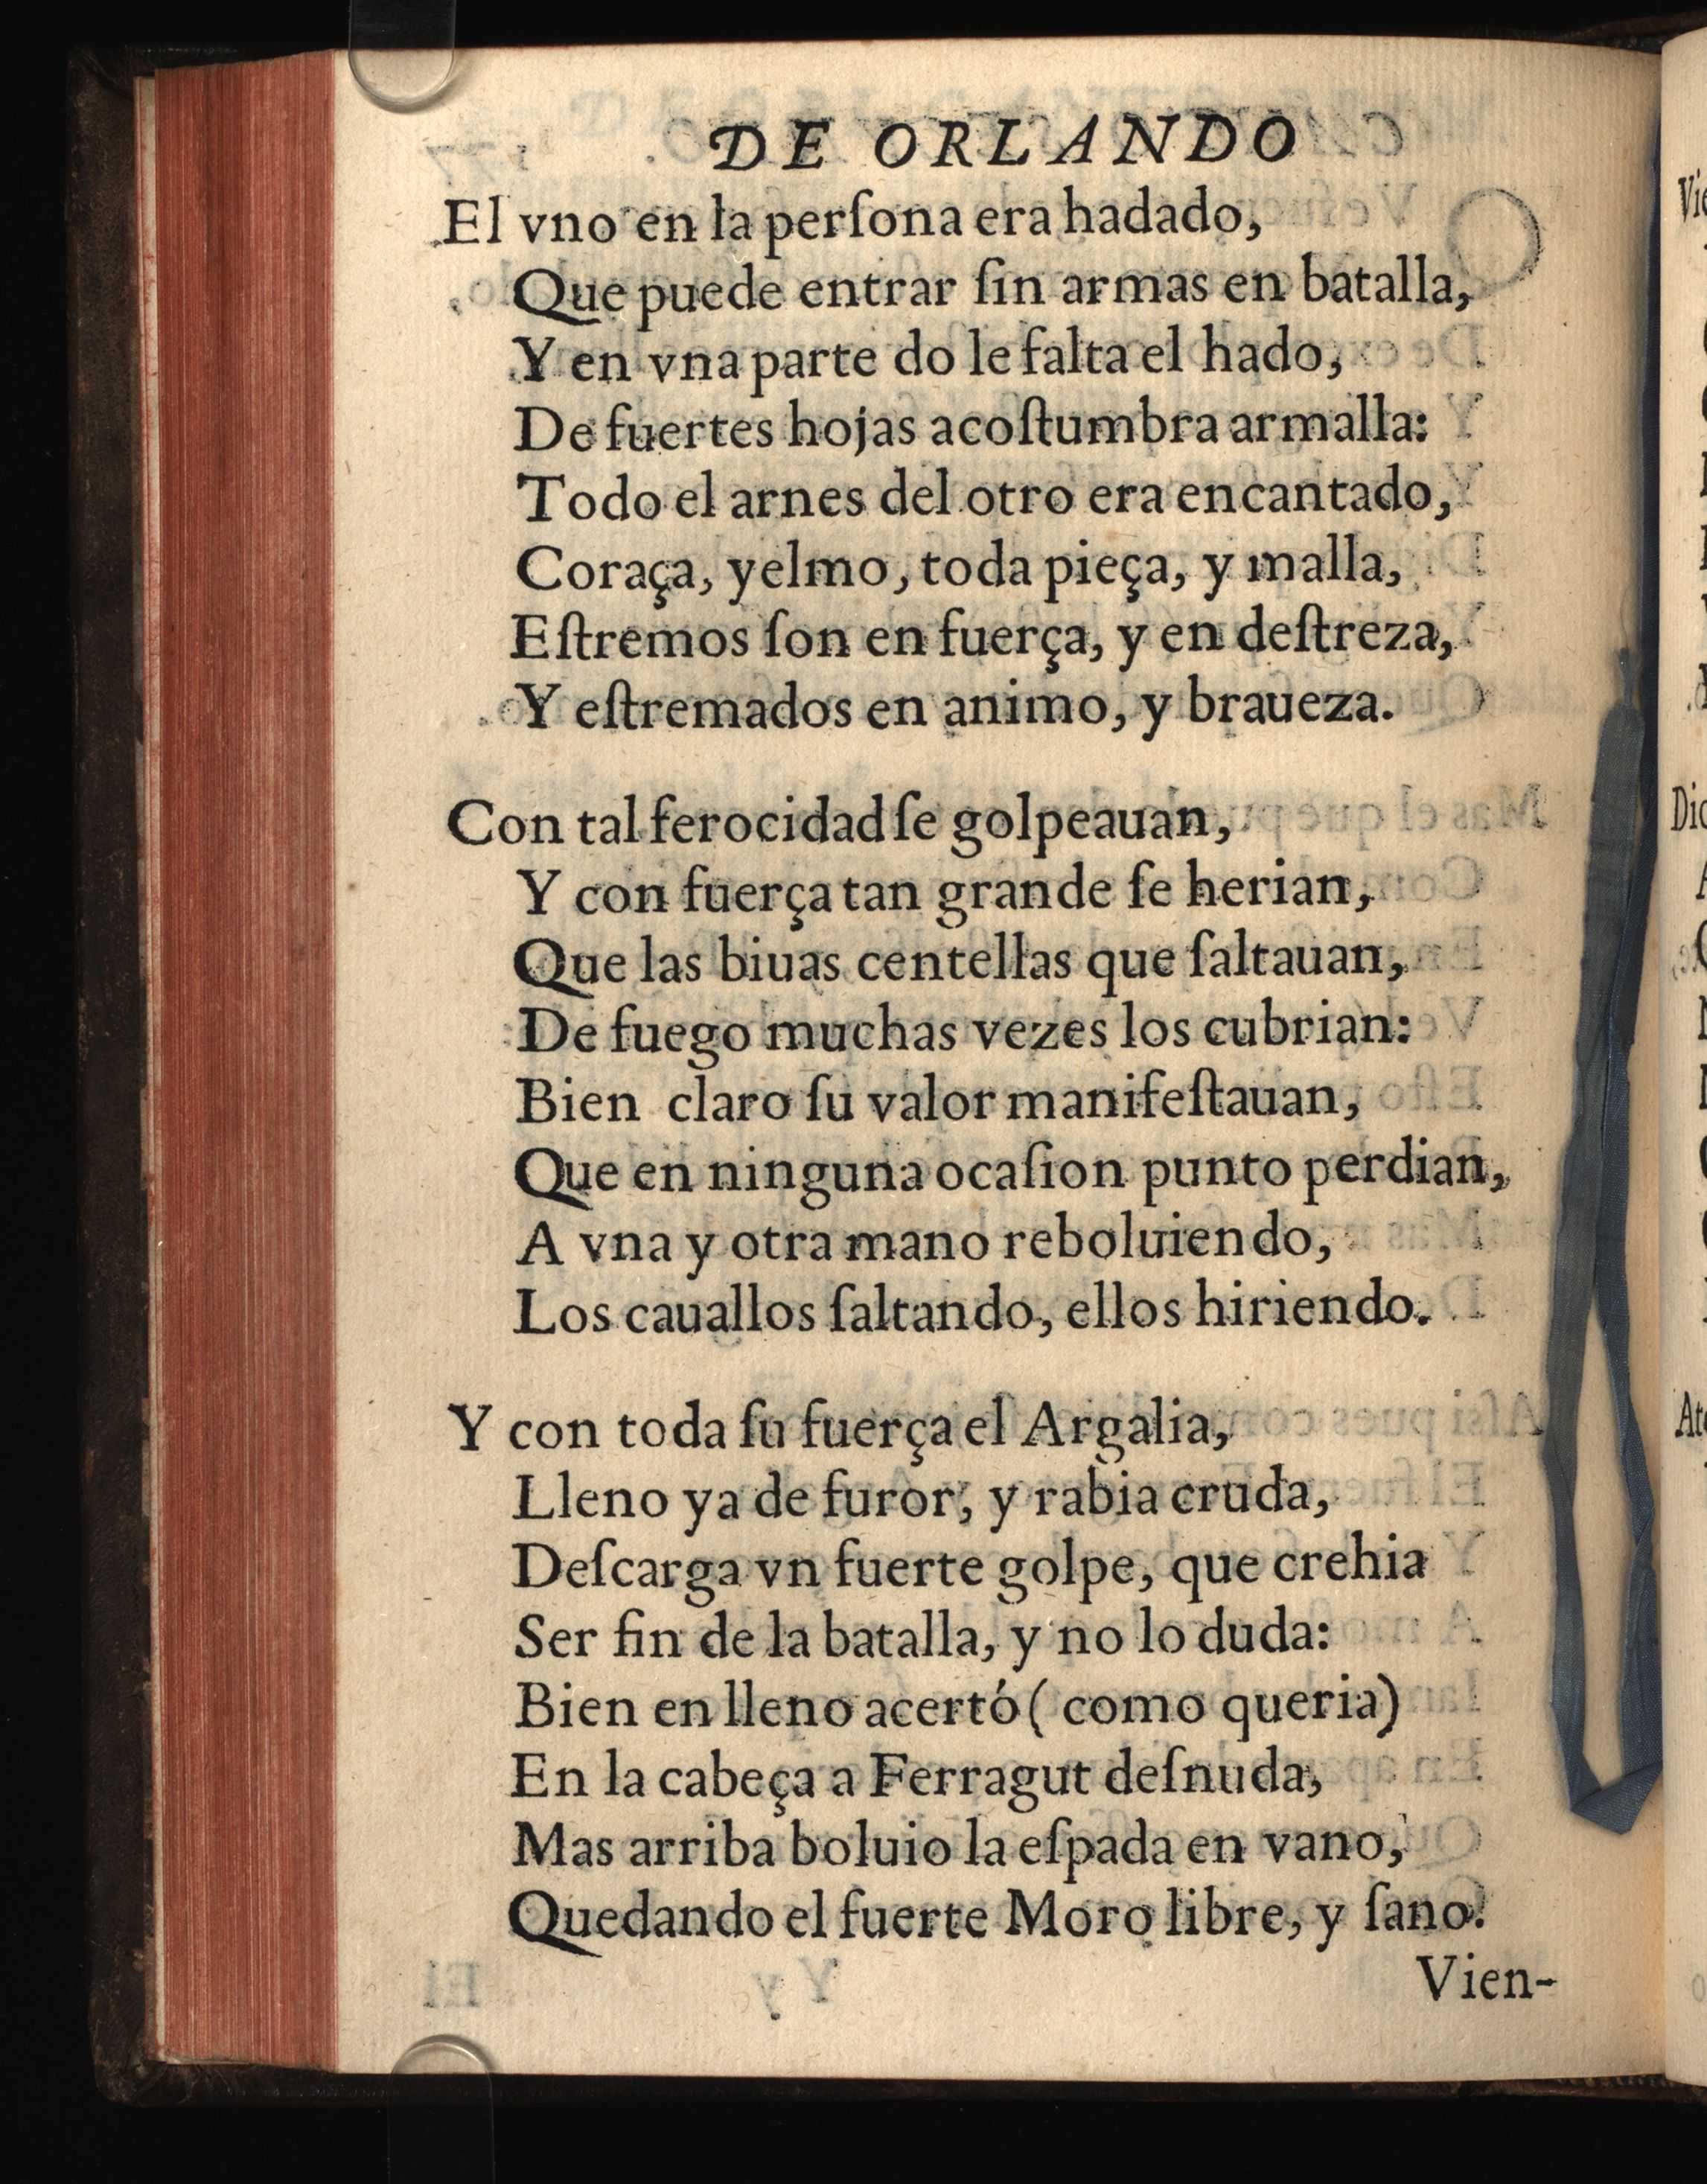 DE ORLANDO
El vno en la perſona era hadado,
Que puede entrar ſin armas en batalla,
Y en vna parte do le falta el hado,
De fuertes hojas acoſtumbra armalla:
Todo el arnes del otro era encantado,
Coraça, yelmo, toda pieça, y malla,
Eſtremos ſon en fuerça, y en deſtreza,
Y eſtremados en animo, y braueza.
Con tal ferocidad ſe golpeauan,
Y con fuerça tan grande ſe herian,
Que las biuas centellas que ſaltauan,
De fuego muchas vezes los cubrian:
Bien claro ſu valor manifeſtauan,
Que en ninguna ocaſion punto perdian,
A vna y otra mano reboluiendo,
Los cauallos ſaltando, ellos hiriendo.
Y con toda ſu fuerça el Argalia,
Lleno ya de furor, y rabia cruda,
Deſcarga vn fuerte golpe, que crehia
Ser fin de la batalla, y no lo duda:
Bien en lleno acertó ( como queria)
En la cabeça a Ferragut deſnuda,
Mas arriba boluio la eſpada en vano,
Quedando el fuerte Moro libre, y ſano.
Vien-